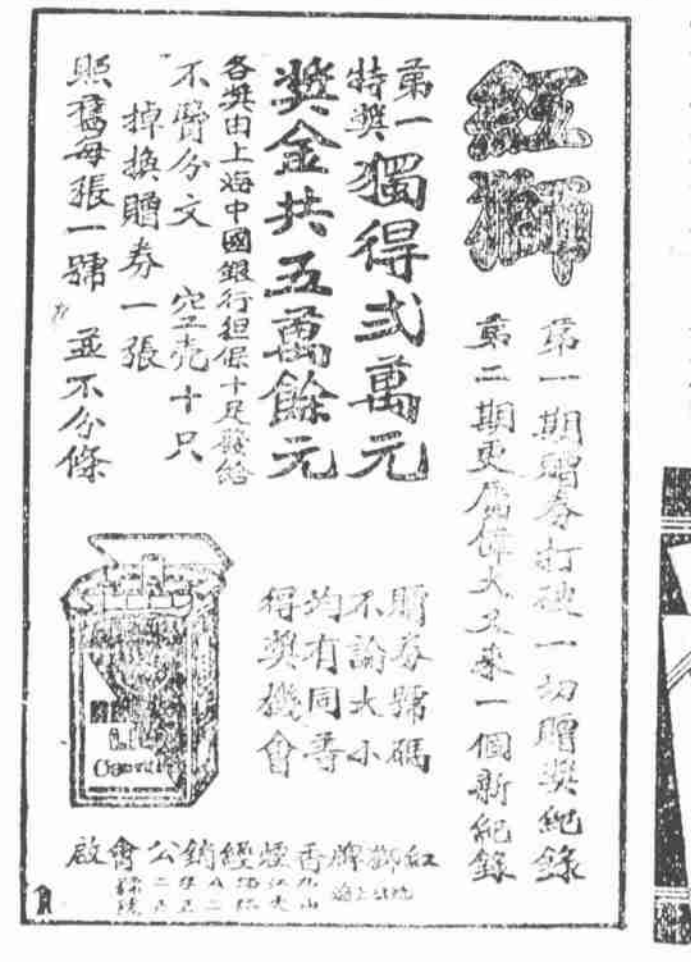 紅獅
第一期贈券打破一切贈獎紀錄
第二期更屬偉大又來一個新紀錄
第一特獎獨得弍萬元
獎金共五萬餘元
各獎由上海中國銀行担保十足發給
不費分文 空壳十只
掉換贈券一張
照舊每張一號 並不分條
贈券號碼
不論大小
均有同等
得獎機會
紅獅牌香煙經銷公會啟